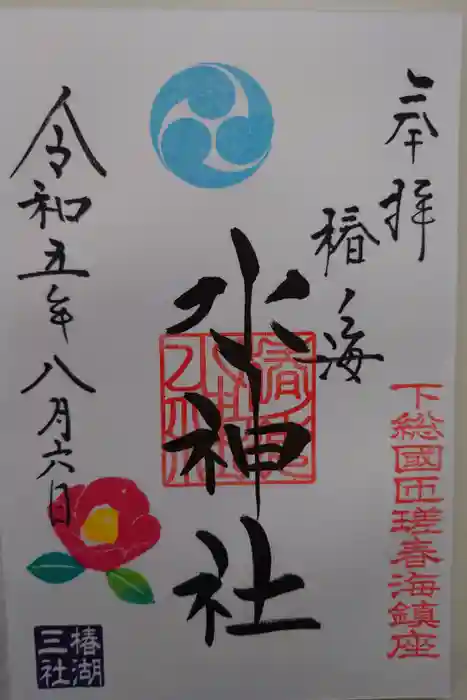 奉拝
椿ノ海
下総國匝瑳春海鎮座
水神社
令和五年八月六日
椿湖
三社